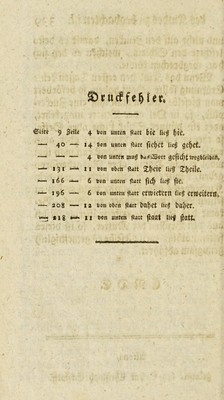 Druckfehler.
Seite 9 Zeile 4 von unten statt hie ließ hie.
— 40 — 14 von unten statt siehet ließ gehet.
— — 4 von unten muß das Wort gesicht wegbleiben.
— 131 — 11 von oben statt Their ließ Theile.
— 166 — 6 von unten statt sich ließ sie.
— 196 — 6 von unten statt erwietern ließ erweitern.
— 208 — 12 von oben statt dahet ließ daher.
— 218 — 11 von unten statt staut ließ statt.